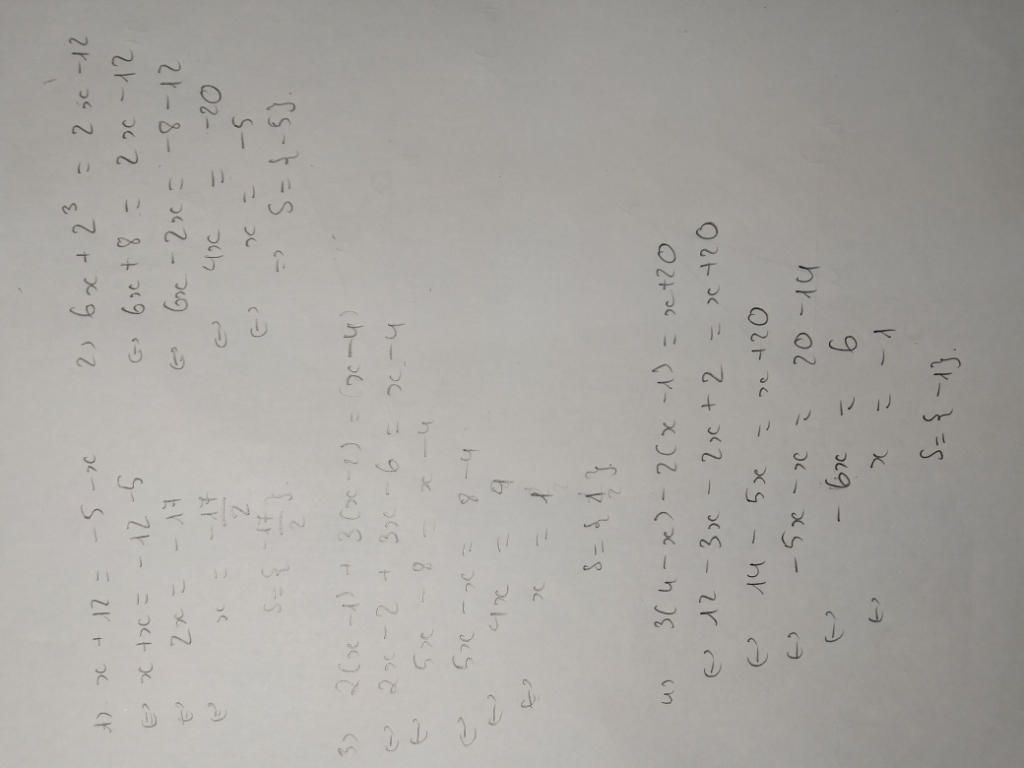 1) x + 12 = - 5 - x
⇔ x + x = - 12 - 5
⇔ 2x = - 17
⇔ x = -17/2
S = { -17/2 }.
2) 6x + 2³ = 2x - 12
⇔ 6x + 8 = 2x - 12
⇔ 6x - 2x = - 8 - 12
⇔ 4x = - 20
⇔ x = - 5
⇒ S = { - 5 }.
3) 2(x - 1) + 3(x - 2) = (x - 4)
⇔ 2x - 2 + 3x - 6 = x - 4
⇔ 5x - 8 = x - 4
⇔ 5x - x = 8 - 4
⇔ 4x = 4
⇔ x = 1
S = { 1 }
4) 3(4 - x) - 2(x - 1) = x + 20
⇔ 12 - 3x - 2x + 2 = x + 20
⇔ 14 - 5x = x + 20
⇔ - 5x - x = 20 - 14
⇔ - 6x = 6
⇔ x = - 1
S = { - 1 }.